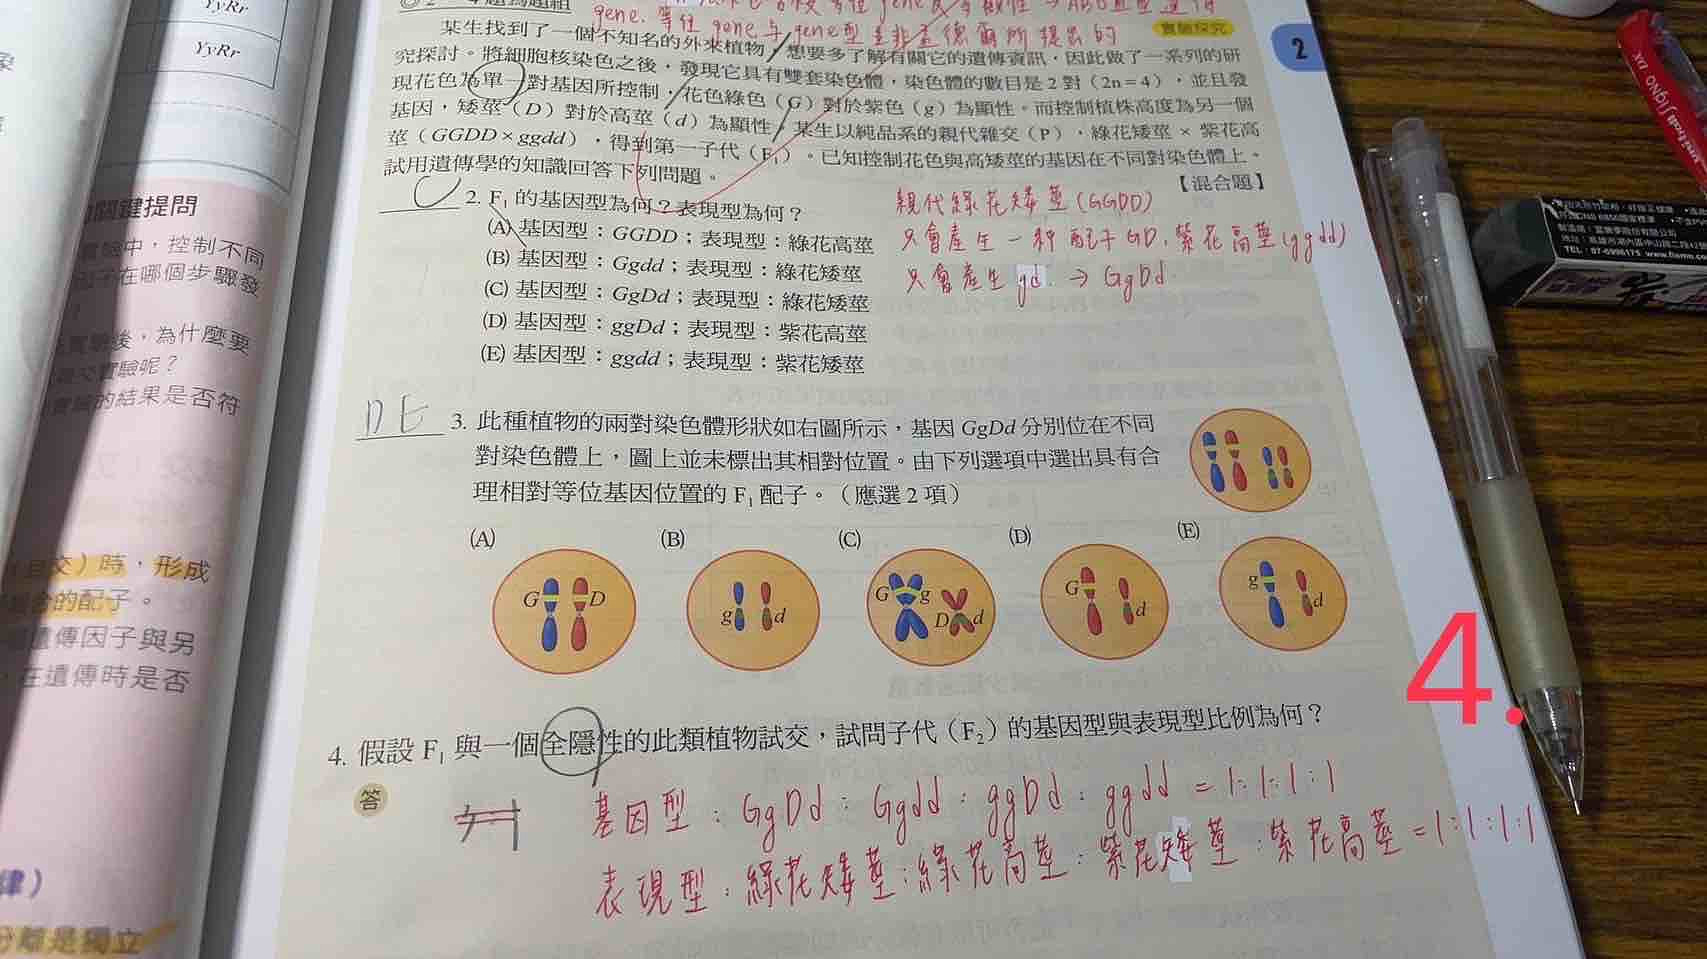 YyRr
YyRr
關鍵提問
實驗中，控制不同
在哪個步驟發
後，為什麼要
實驗呢？
的結果是否符
交）時，形成
的配子。
遺傳因子與另
，在遺傳時是否
律）
分離是獨立
gene. 等位 gene 與 gene型 並非孟德爾所提出的
實驗探究
2
某生找到了一個不知名的外來植物，想要多了解有關它的遺傳資訊，因此做了一系列的研
究探討。將細胞核染色之後，發現它具有雙套染色體，染色體的數目是 2 對（2n＝4），並且發
現花色為單一對基因所控制，花色綠色（G）對於紫色（g）為顯性。而控制植株高度為另一個
基因，矮莖（D）對於高莖（d）為顯性，某生以純品系的親代雜交（P），綠花矮莖 × 紫花高
莖（GGDD × ggdd），得到第一子代（F₁）。已知控制花色與高矮莖的基因在不同對染色體上。
試用遺傳學的知識回答下列問題。
【混合題】
C 2. F₁ 的基因型為何？表現型為何？
(A) 基因型：GGDD；表現型：綠花高莖
(B) 基因型：Ggdd；表現型：綠花矮莖
(C) 基因型：GgDd；表現型：綠花矮莖
(D) 基因型：ggDd；表現型：紫花高莖
(E) 基因型：ggdd；表現型：紫花矮莖
親代綠花矮莖(GGDD)
只會產生一种配子GD，紫花高莖(ggdd)
只會產生gd. → GgDd
DE 3. 此種植物的兩對染色體形狀如右圖所示，基因 GgDd 分別位在不同
對染色體上，圖上並未標出其相對位置。由下列選項中選出具有合
理相對等位基因位置的 F₁ 配子。（應選 2 項）
(A) (B) (C) (D) (E)
G D g d G g D d G d g d
4.
4. 假設 F₁ 與一個全隱性的此類植物試交，試問子代（F₂）的基因型與表現型比例為何？
答
基因型：GgDd：Ggdd：ggDd：ggdd = 1:1:1:1
表現型：綠花矮莖：綠花高莖：紫花矮莖：紫花高莖 = 1:1:1:1
TEL：07-6996175 www.flame.co
uni-ball SIGNO DX